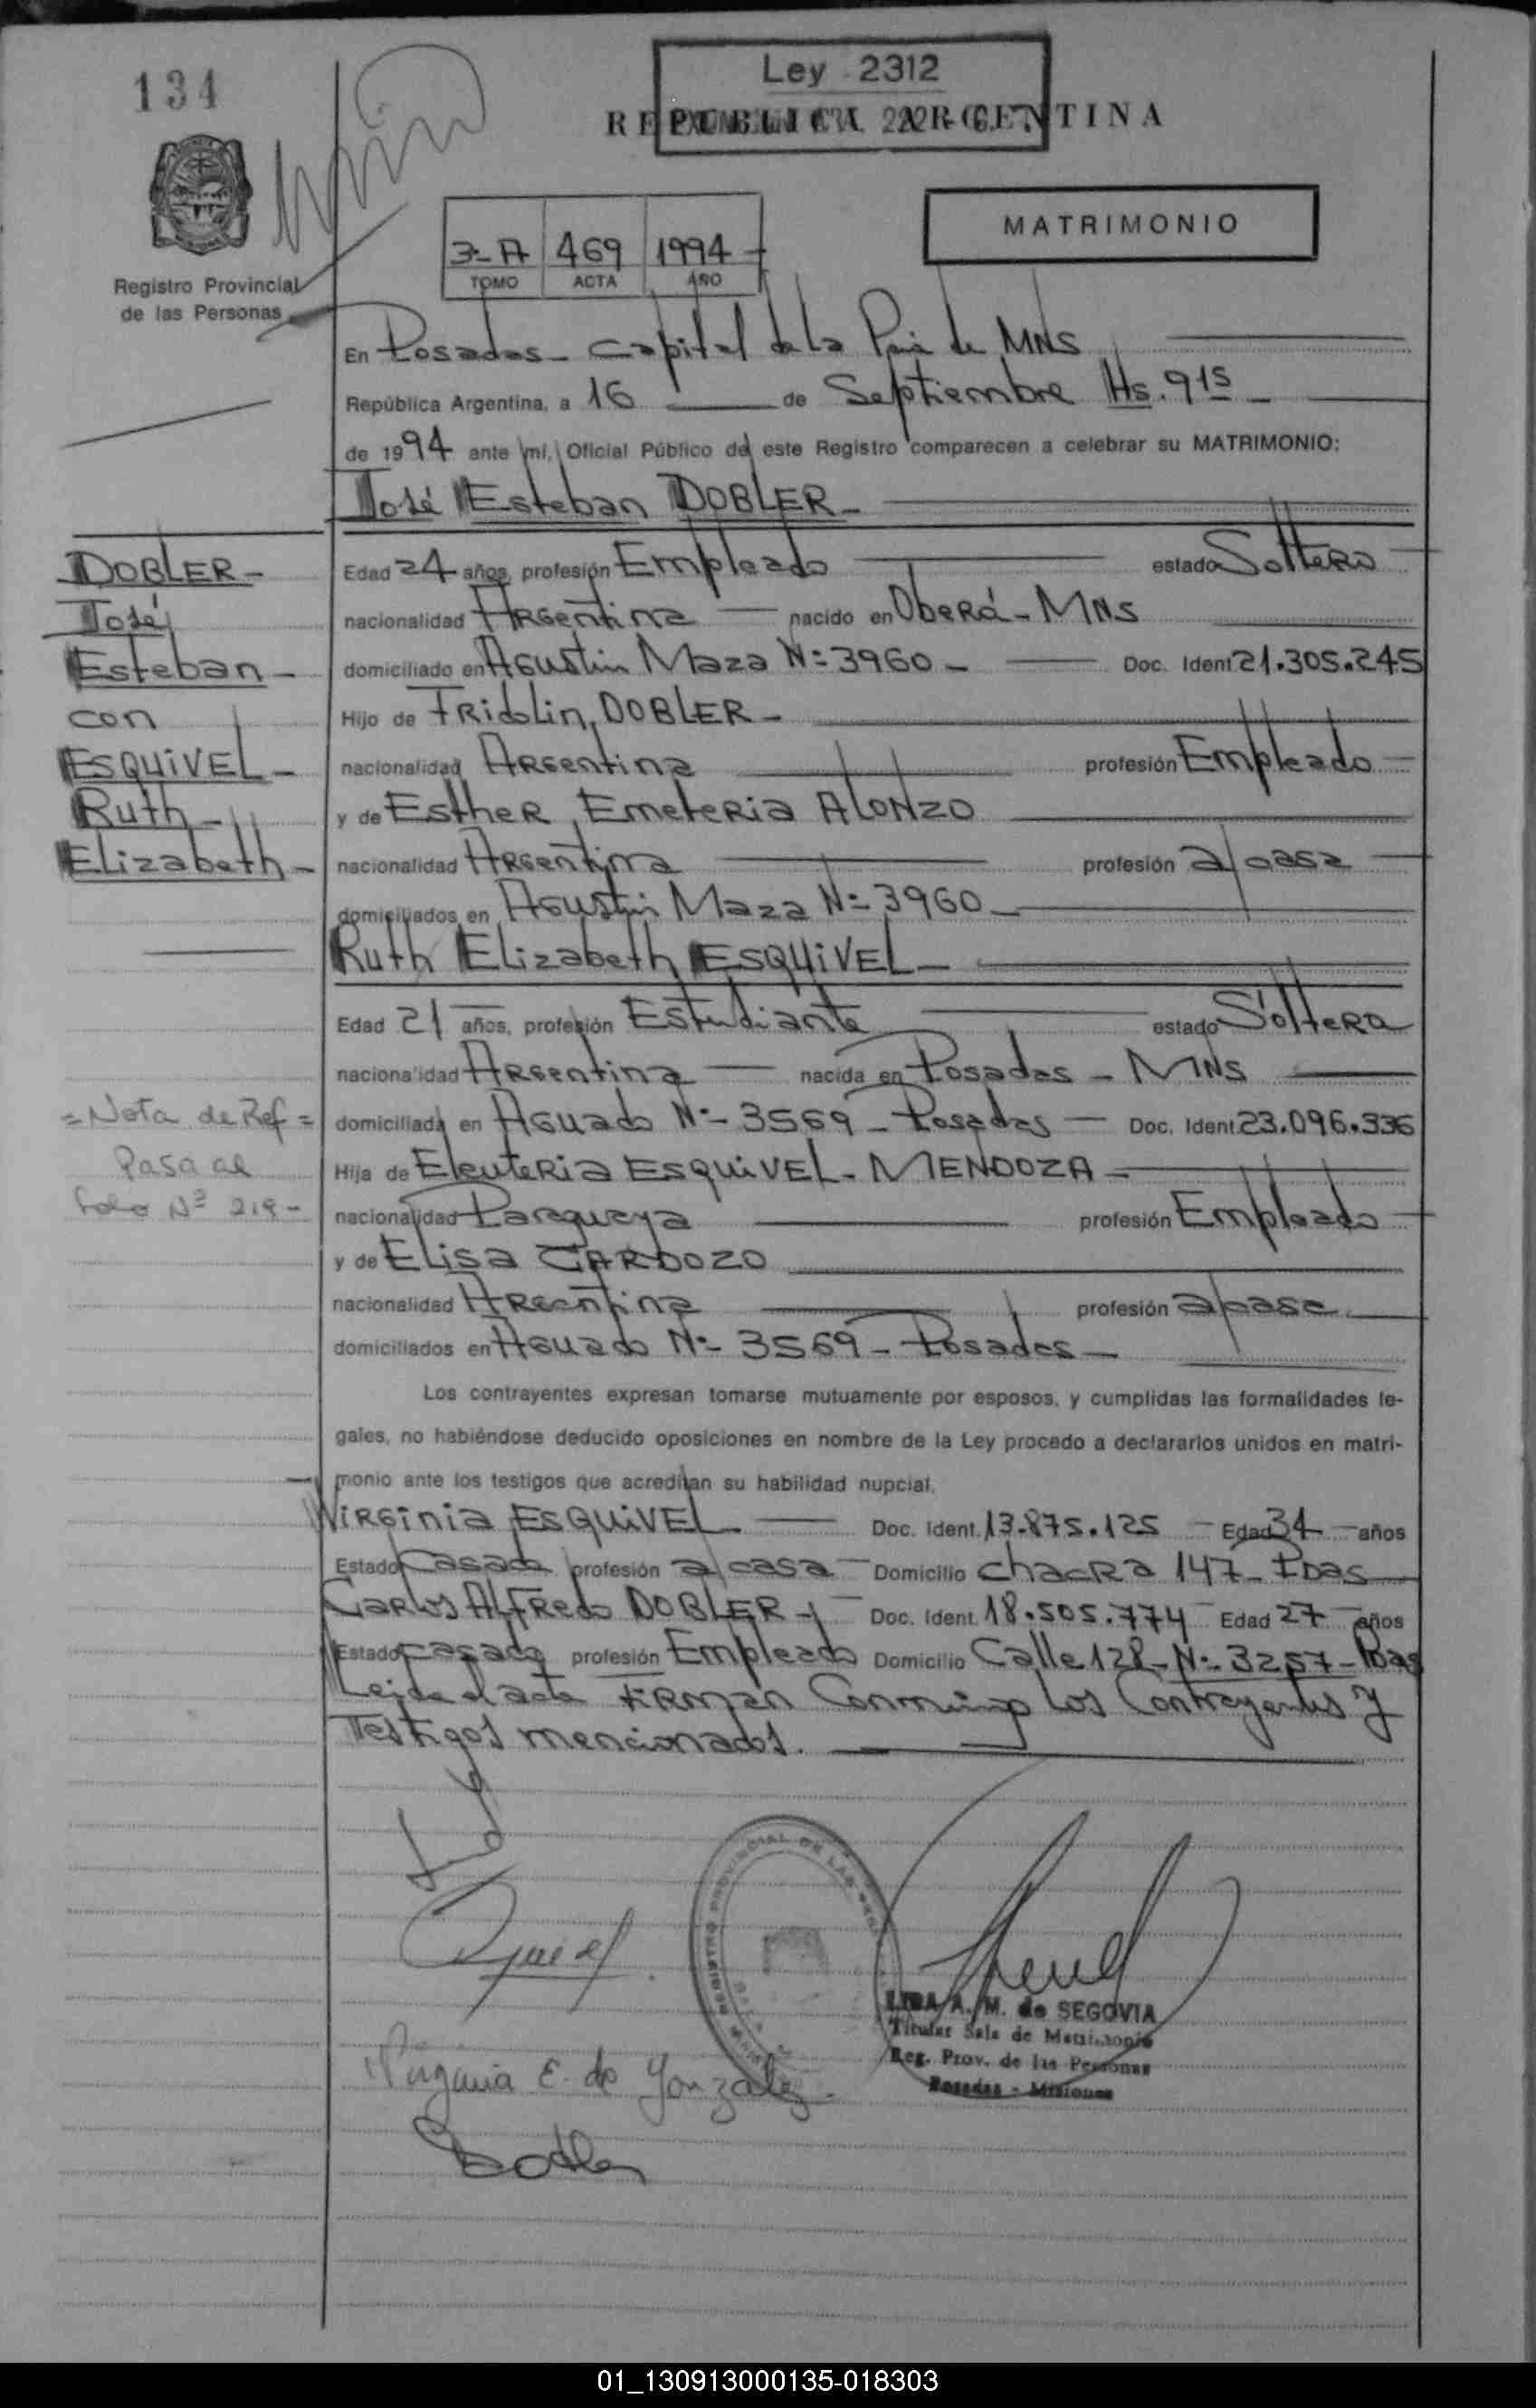 134
Ley 2312
REPUBLICA ARGENTINA
MATRIMONIO
3-A 469 1994
TOMO ACTA AÑO
Registro Provincial
de las Personas
En Posadas - Capital de la de MNS
República Argentina, a 16 de Septiembre Hs. 9 15
de 1994 ante mí, Oficial Público de este Registro comparecen a celebrar su MATRIMONIO:
José Esteban DOBLER -
DOBLER -
José
Esteban -
con
ESQUIVEL -
Ruth -
Elizabeth -
Edad 24 años, profesión Empleado estado Soltero
nacionalidad Argentina nacido en Oberá - MNS
domiciliado en Agustin Maza Nº 3960 - Doc. Ident. 21.305.245
Hijo de Fridolin, DOBLER -
nacionalidad Argentina profesión Empleado
y de Esther Emeteria ALONZO
nacionalidad Argentina profesión a/casa
domiciliados en Agustin Maza Nº 3960 -
Ruth Elizabeth ESQUIVEL -
Edad 21 años, profesión Estudiante estado Soltera
nacionalidad Argentina nacida en Posadas - MNS
domiciliada en Aguado Nº 3569 - Posadas Doc. Ident. 23.096.336
Hija de Eleuteria ESQUIVEL - MENDOZA -
nacionalidad Paraguaya profesión Empleado
y de Elisa CARDOZO
nacionalidad Argentina profesión a/casa
domiciliados en Aguado Nº 3569 - Posadas -
= Nota de Ref =
Pasa al
folio Nº 219 -
Los contrayentes expresan tomarse mutuamente por esposos, y cumplidas las formalidades le-
gales, no habiéndose deducido oposiciones en nombre de la Ley procedo a declararlos unidos en matri-
monio ante los testigos que acreditan su habilidad nupcial.
Virginia ESQUIVEL - Doc. Ident. 13.875.125 Edad 34 años
Estado Casada profesión a/casa Domicilio Chacra 147 - Pdas
Carlos Alfredo DOBLER - Doc. Ident. 18.505.774 Edad 27 años
Estado casado profesión Empleado Domicilio Calle 128 - Nº 3257 - Pdas
Leida el acta Firman Conmigo los Contrayentes y
Testigos mencionados.
REGISTRO PROVINCIAL DE LAS
A. M. de SEGOVIA
Titular Sala de Matrimonio
Reg. Prov. de las Personas
Posadas - Misiones
Virginia E. de Gonzalez.
Dobler
01_130913000135-018303